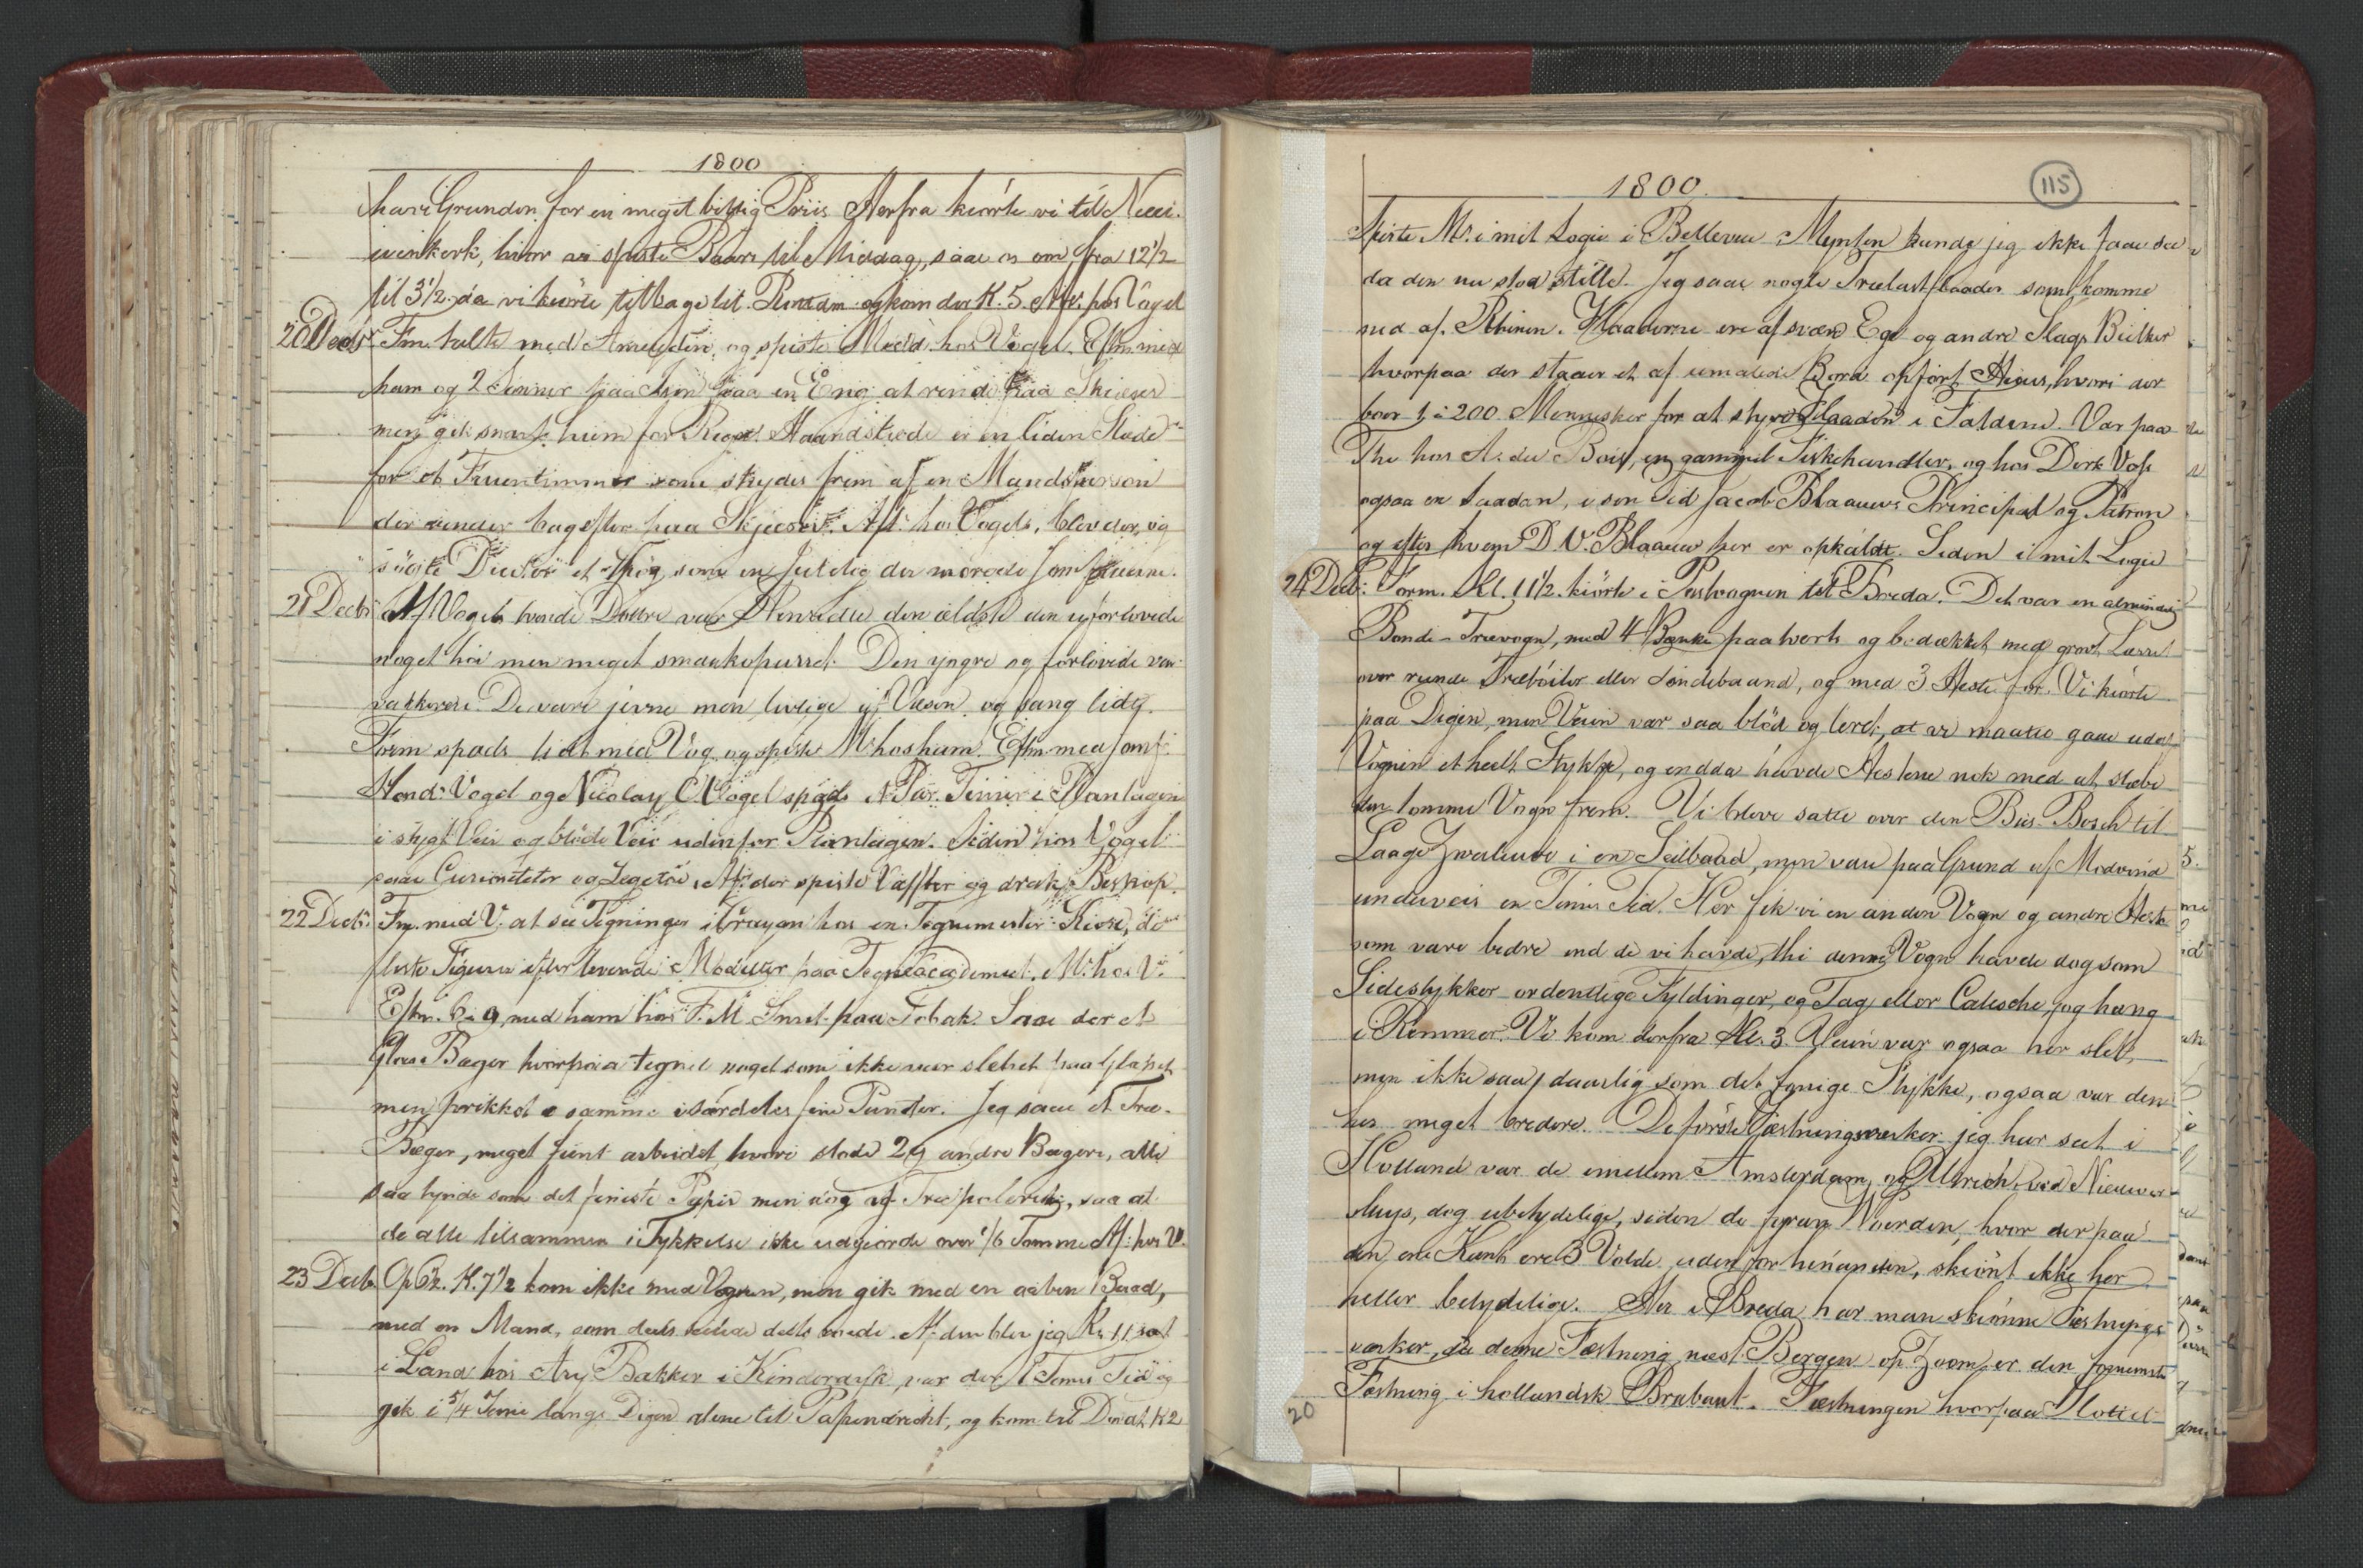 1800
have Grunden for en meget billig Priis Herfra kiørte vi til Nieu-
wenkerk, hvor vi spiste Baars til Middag, saae os om fra 12 1/2
til 3 1/2 da vi kiørte tilbage til og kom der K. 5. Aft. hos Vogel
20 Decbr Fm. talte med og spiste Midd. hos Vogel. Eftm. med
ham og 2 Sønner paa en Eng at rende paa Skieiser
men gik snart hiem for Regn. Haandslæde er en liden Slæde
for et Fruentimmer som skydes frem af en Mandsperson
der render bagefter paa Skjeiser. Aft. hos Vogels, blev der og
et som en der morede
21 Decbr Af Vogels tvende Døttre var den ældste den uforlovede
noget høi men meget smukt pudset. Den yngre og forlovede var
vakkrere. De vare jevne men livlige i Væsen og sang lidt.
Form spads. lidt med Vog. og spiste M. hos ham. Eftm. med Jomf.
Hend. Vogel og Nicolay C Vogel spads. et Par Timer i Plantagen
i stygt Veir og bløde Veie udenfor Plantagen. Siden hos Vogel
saae Curiositeter og Legetøi, Aft. der spiste Vaffler og drak Biskop.
22 Decbr. Fm. med V. at see Tegninger i Crayon hos en Tegnemester de
fleste Figurer efter levende Modeller paa Tegneacademiet. M. hos V.
Eftm. 6 a 9 med ham hos F. M. Smit paa Tobak. Saae der et
Glas Bæger hvorpaa tegnet noget som ikke var slebet paa Glasset
men prikket i samme i særdeles fine Puncter. Jeg saae et Træ-
Bæger, meget fiint arbeidet, hvori stode 24 andre Bægere, alle
saa tynde som det fineste Papir men dog af Træ saa at
de alle tilsammen i Tykkelse ikke udgiorde over 1/6 Tomme Aft. hos V.
23 Decb. Op 6 1/2. K. 7 1/2 kom ikke med Vognen, men gik med en aaben Baad,
med en Mand, som deels seilede deels roede. Af den blev jeg K. 11 sat
i Land hos Ary Bakker i Kinderdyk, var der 1 Times Tid og
gik i 5/4 Time langs Digen alene til Papendrecht, og kom til Dordt. K 2
1800.
115
Spiste M. i mit Logie i Bellevue. Mynten kunde jeg ikke faae see
da den nu stod stille. Jeg saae nogle Trælastflaader som komme
ned af Rhinen. Flaaderne ere af svære Ege og andre Slags Bielker
hvorpaa der staaer et af umalede Bord opført Huus, hvori der
boer 1 a 200 Mennesker for at styre Flaaden i Farten. Var paa
The hos A. du Bois, en gammel Fiskehandler, og hos Dirk Vos
ogsaa en saadan, i sin Tid Jacob Blaauws Principal og Patron
og efter hvem D. V. Blaauw her er opkaldt. Siden i mit Logie
24 Decb: Form. Kl. 11 1/2 kiørte i Postvognen til Breda. Det var en almindelig
Bonde-Trævogn, med 4 Bænke paatverts og bedækket med grovt Lærret
over runde Træbøiler eller Tøndebaand, og med 3 Heste for. Vi kiørte
paa Digen, men Veien var saa blød og leret, at vi maatte gaae ud af
Vognen et heelt Stykke, og endda havde Hestene nok med at slæbe
den tomme Vogn frem. Vi bleve satte over den Bies Bosch til
Laage Zwaluwe i en Seilbaad, men vare paa Grund af Modvind
underveis en Times Tid. Her fik vi en anden Vogn og andre Heste
som vare bedre end de vi havde, thi denne Vogn havde dog som
Sidestykker ordentlige Fyldinger, og Tag eller Calesche, og hang
i Remmer. Vi kom derfra Kl. 3. Veien var ogsaa her slet,
men ikke saa daarlig som det forrige Stykke, ogsaa var den
her meget bredere. De første Fæstningsverker jeg har seet i
Holland var de imellem Amsterdam og Utrech, ved Nieuwer-
sluys, dog ubetydelige, siden de foran Woerden, hvor der paa
den ene Kant ere 3 Volde udenfor hinanden, skiønt ikke her
heller betydelige. Her i Breda har man skiønne Fæstnings
værker, da denne Fæstning næst Bergen op Zoom er den fornemste
Fæstning i hollandsk Brabant. Fæstningen hvorpaa Slottet
20